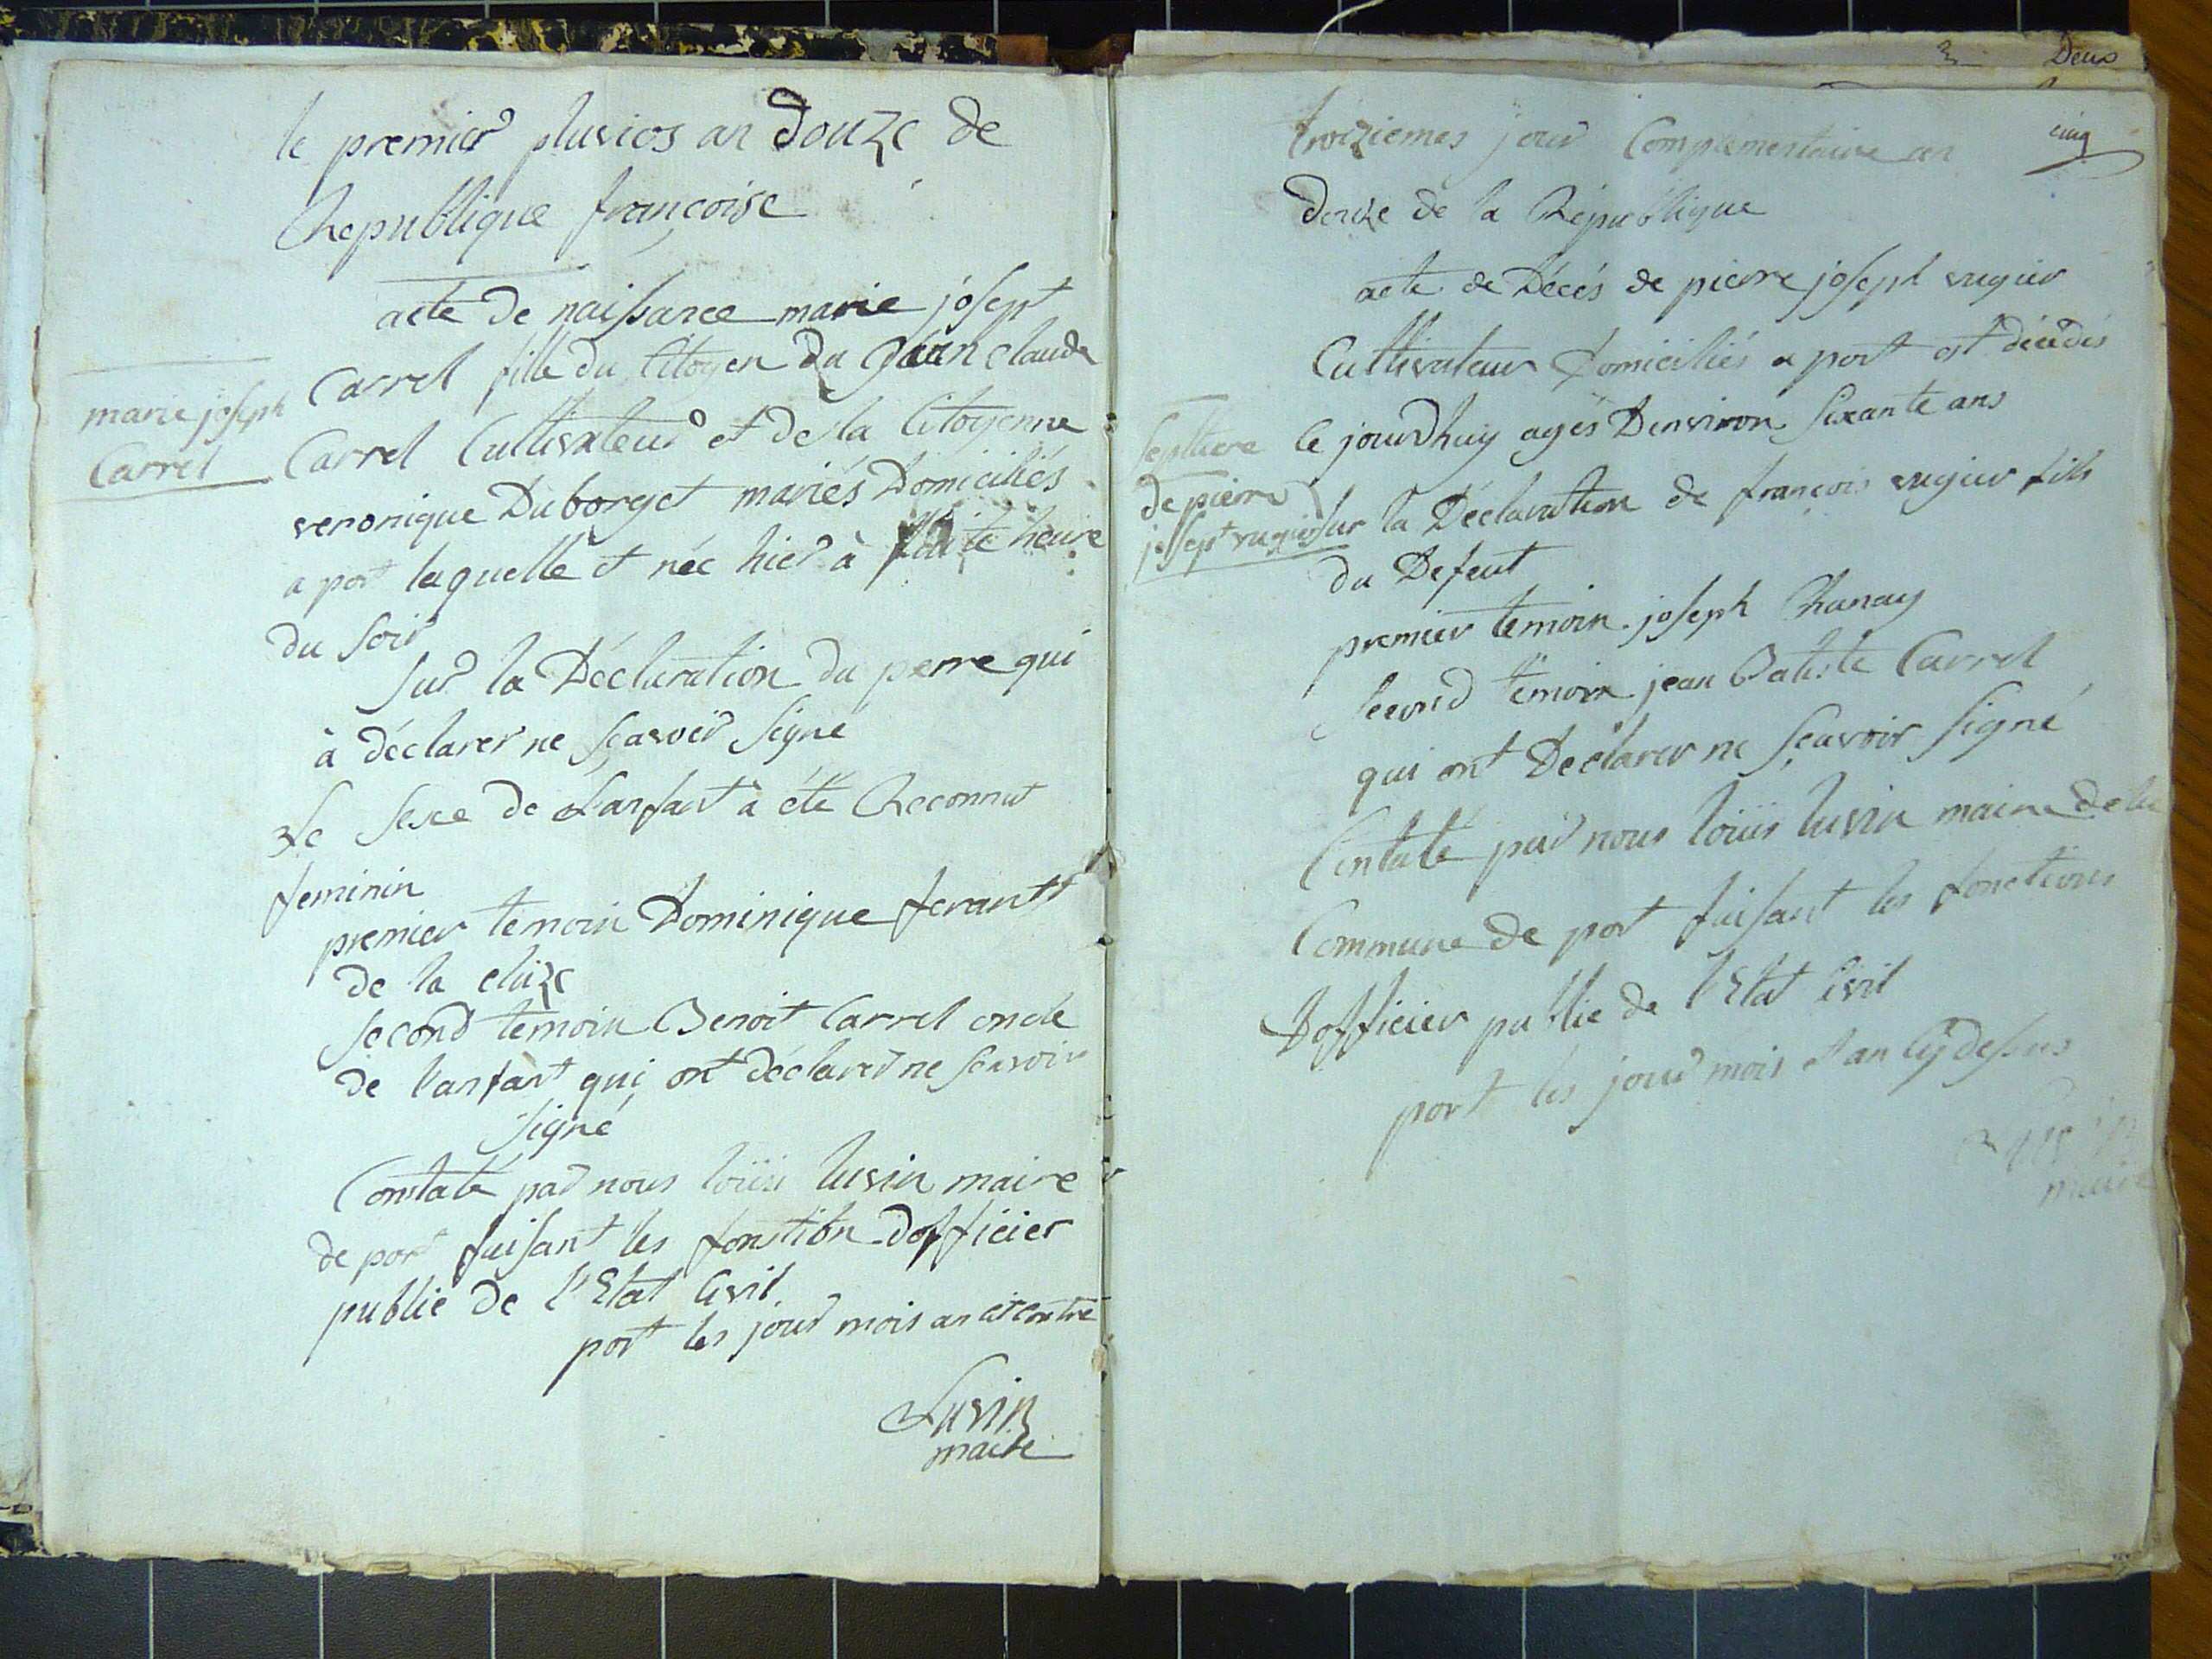 le premier pluvios an douze de
Republique françoise
acte de naissance marie josept
Carrel fille du Citoyen du jean claude
Carrel Cultivateur et de la Citoyenne
veronique Duborget mariés Domiciliés
a port laquelle et née hier à heure
du soir
sur la Déclaration du perre qui
à déclarer ne sçavoir signé
Le sexe de Lanfant à été Reconnut
feminin
premier temoin Dominique ferant
de la cluze
second temoin Benoit Carrel oncle
de lanfant qui ont déclarer ne scavoir
signé
Constaté par nous loüis luvin maire
de port faisant les fonction dofficier
public de l'Etat Civil
port les jour mois an
Luvin
maire
marie joseph
Carrel
Deux
cinq
troiziemes jour Complementaire an
douze de la République
acte de Décés de pierre joseph vugier
Cultivateur Domiciliés a port est décédés
le jourdhuy ages Denviron sixante ans
sur la Déclaration de françois vugier fils
du Defeut
premier temoin joseph Chanay
second temoin jean Batiste Carrel
qui ont Déclarer ne sçavoir signé
Contaté par nous loüis luvin maire de la
Commune de port faisant les fonctions
Dofficier public de l'Etat Civil
port les jour mois et an cy dessus
maire
Septture
de pierre
jossept vugier